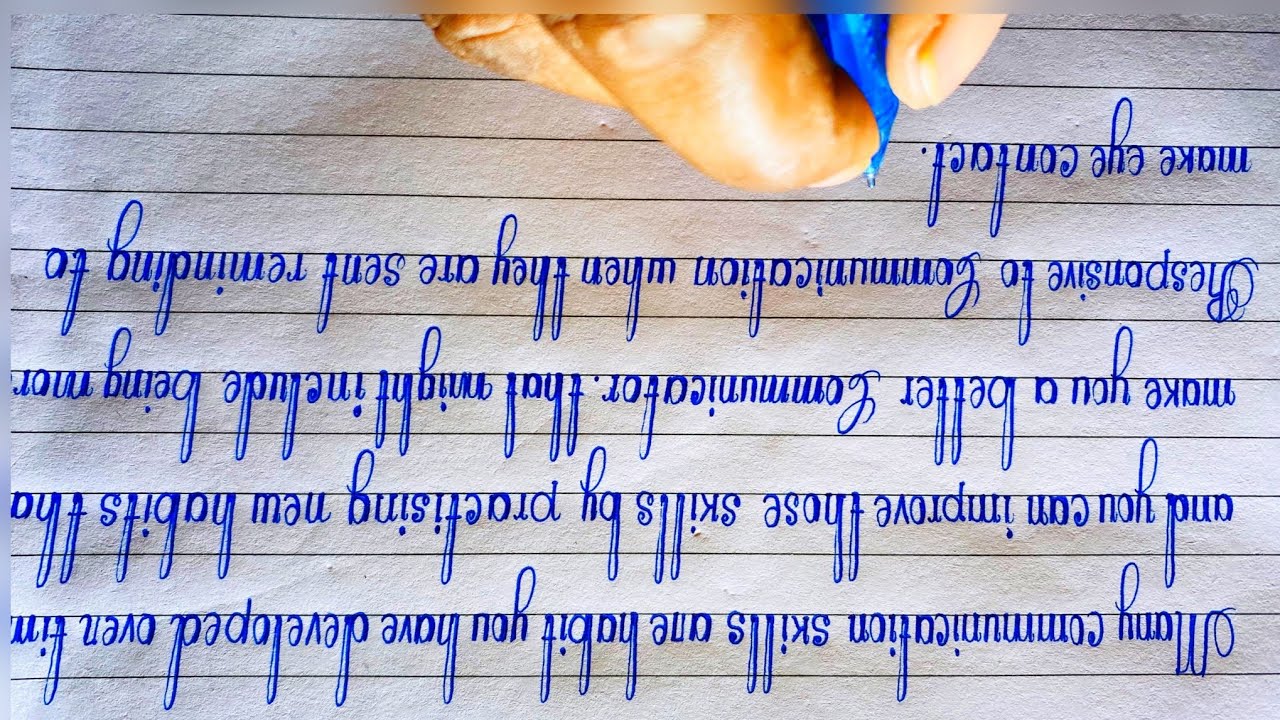 Many communication skills are habit you have developed over tim
and you can improve those skills by practising new habits tha
make you a better Communicator. that might include being mor
Responsive to Communication when they are sent reminding to
make eye contact.